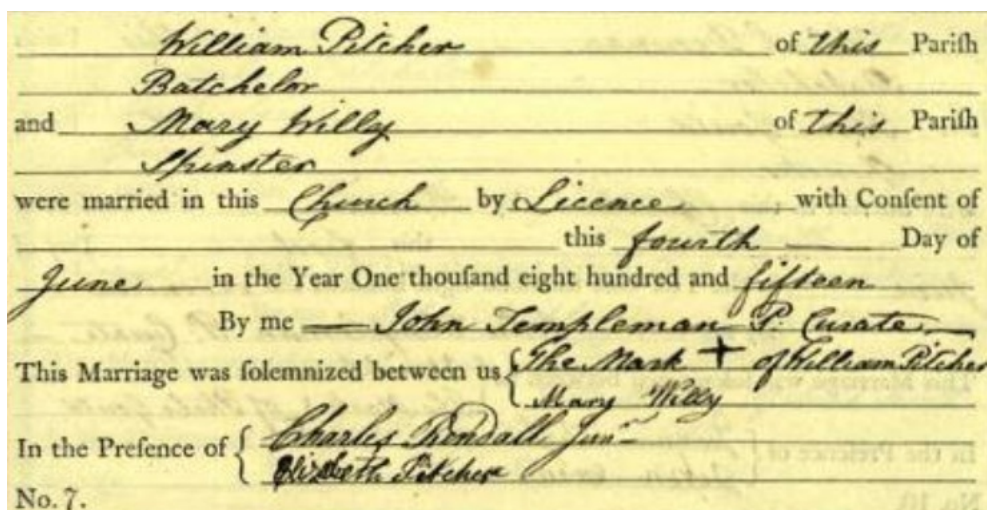 William Pitcher of this Pariſh
Batchelor
and Mary Willy of this Pariſh
Spinster
were married in this Church by Licence with Conſent of
this fourth Day of
June in the Year One thouſand eight hundred and fifteen
By me John Templeman P. Curate
This Marriage was ſolemnized between us { The Mark + of William Pitcher
Mary Willy
In the Preſence of { Charles Rendall Junr
Elizabeth Pitcher
No. 7.